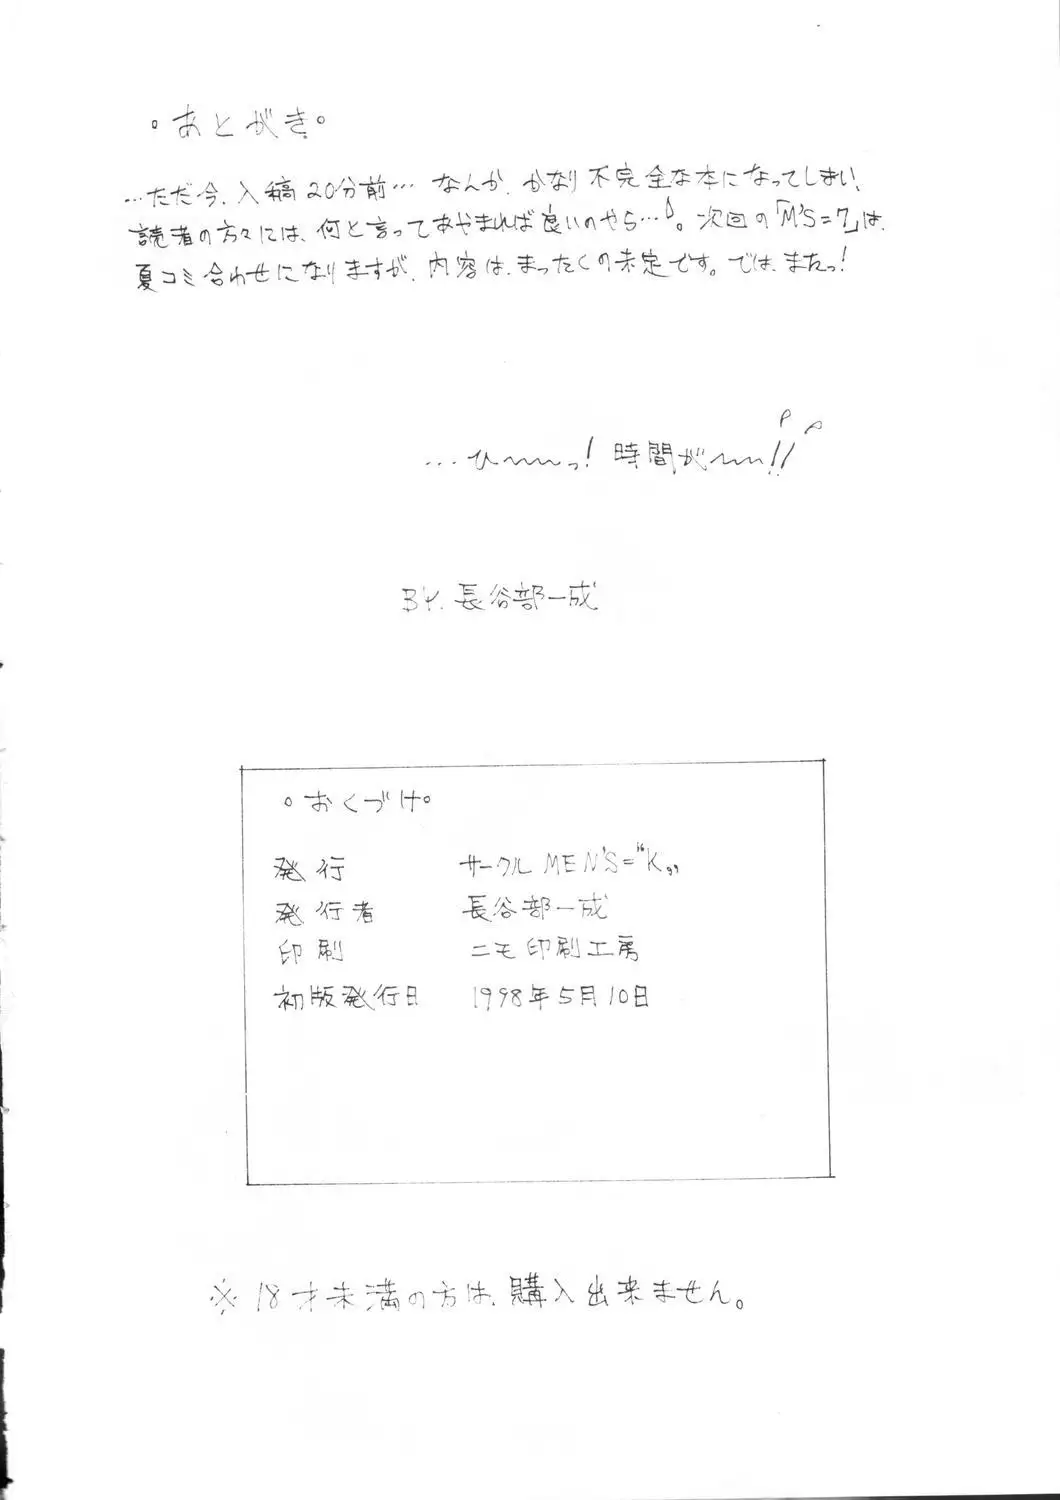 。あとがき。
…ただ今、入稿20分前… なんか、かなり不完全な本になってしまい、
読者の方々には、何と言ってあやまれば良いのやら…。次回の「M'S=7」は、
夏コミ合わせになりますが、内容は、まったくの未定です。では、またっ!
…ひ〜〜っ! 時間が〜〜!!
BY. 長谷部一成
。おくづけ。
発行 サークル MEN'S="K„
発行者 長谷部一成
印刷 ニモ印刷工房
初版発行日 1998年5月10日
※18才未満の方は、購入出来ません。